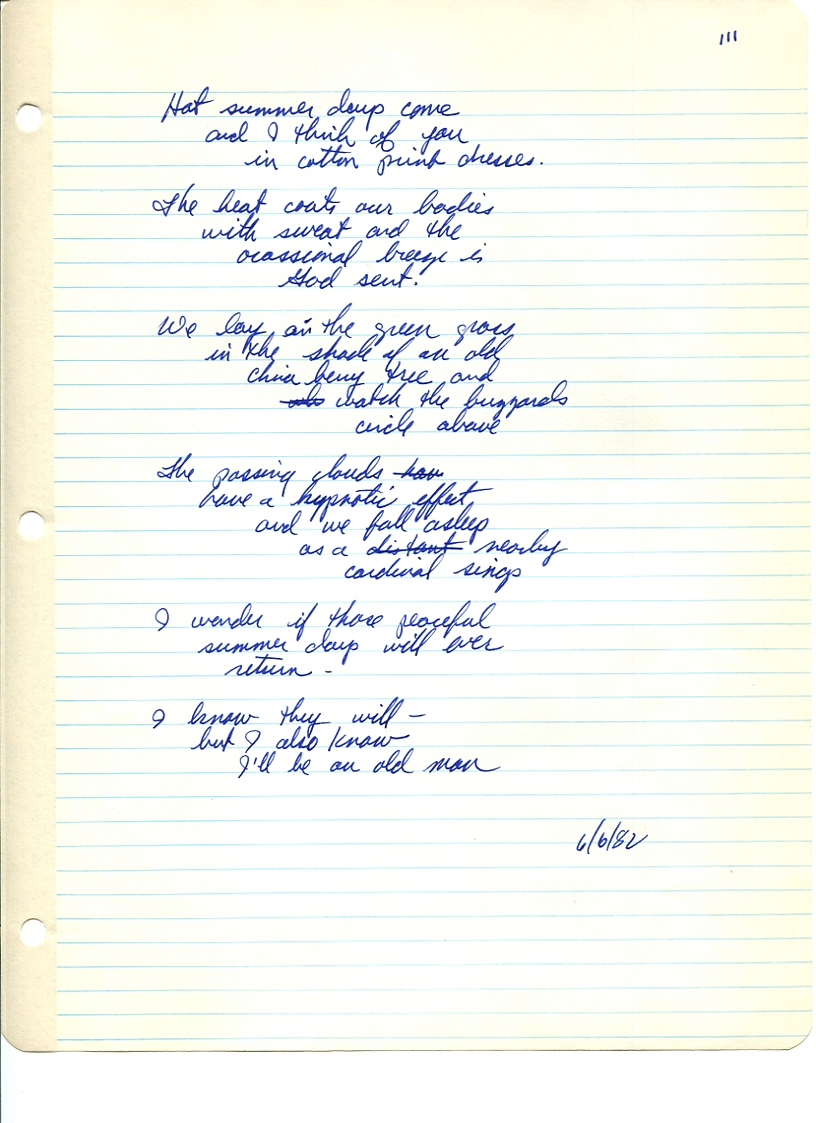 111
Hot summer days come
and I think of you
in cotton print dresses.
The heat coats our bodies
with sweat and the
ocassional breeze is
God sent.
We lay on the green grass
in the shade of an old
china berry tree and
watch the buzzards
circle above
The passing clouds hav
have a hypnotic effect
and we fall asleep
as a distant nearby
cardinal sings
I wonder if those peaceful
summer days will ever
return -
I know they will -
but I also know
I'll be an old man
6/6/82